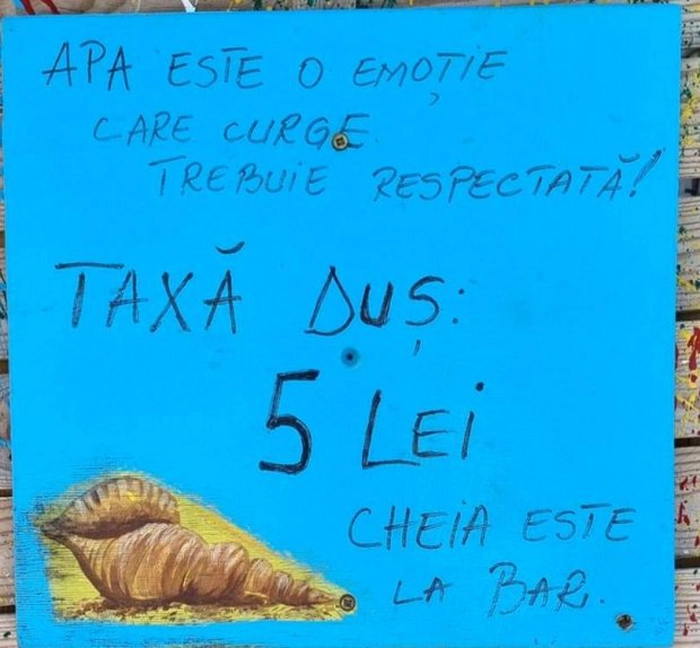 APA ESTE O EMOȚIE
CARE CURGE.
TREBUIE RESPECTATĂ!
TAXĂ DUȘ:
5 LEI
CHEIA ESTE
LA BAR.